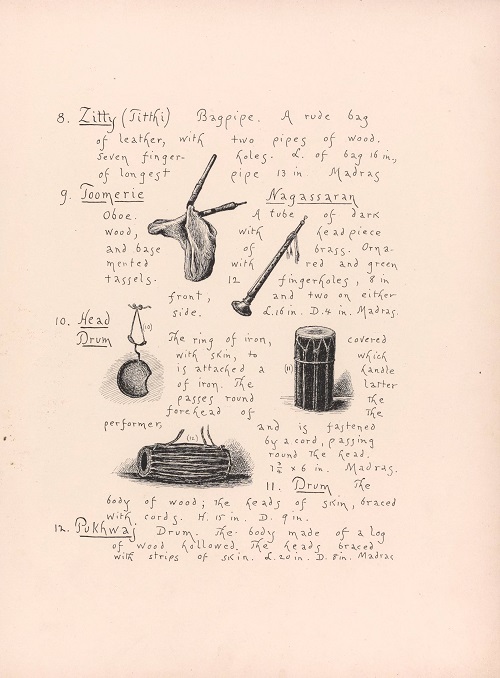 8. Zitty (Titthi) Bagpipe. A rude bag
of leather, with two pipes of wood.
Seven finger- holes. L. of bag 16 in.,
of longest pipe 13 in. Madras
9. Toomerie Nagassaran
Oboe. A tube of dark
wood, with headpiece
and base of brass. Orna-
mented with red and green
tassels. 12 fingerholes, 8 in
front, and two on either
side. L.16 in. D.4 in. Madras.
10. Head
Drum The ring of iron, covered
(10)
with skin, to which
is attached a handle
(11)
of iron. The latter
passes round the
forehead of the
performer, and is fastened
(12) by a cord, passing
round the head.
7¾ x 6 in. Madras.
11. Drum The
body of wood; the heads of skin, braced
with cords. H. 15 in. D. 9 in.
12. Pukhwaj Drum. The body made of a log
of wood hollowed. The heads braced
with strips of skin. L. 20 in. D. 8 in. Madras